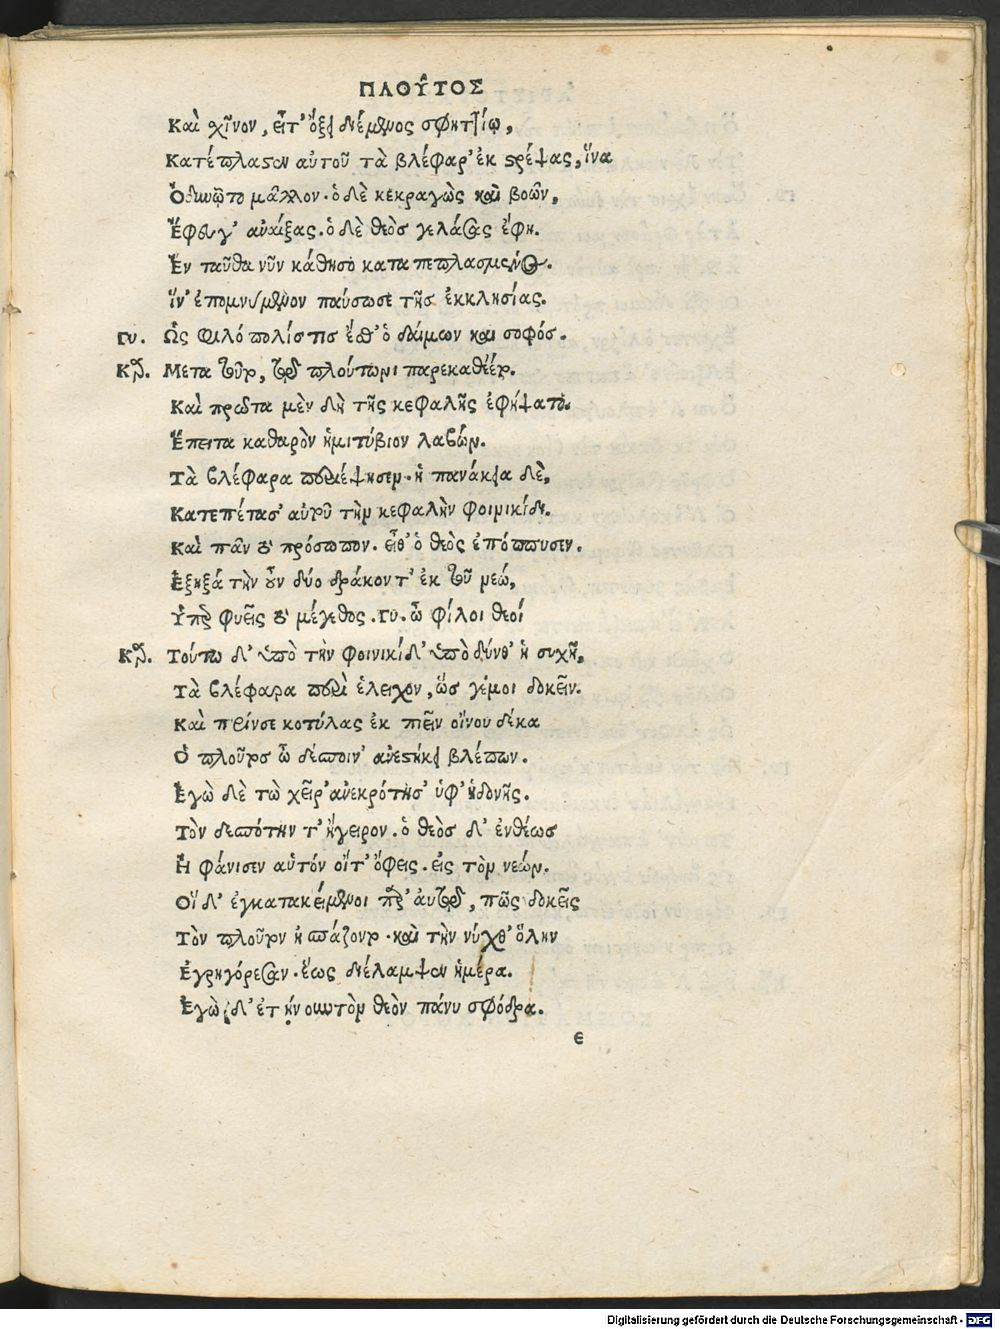 ΠΛΟΥ͂ΤΟΣ
Καὶ χῖνον, εἶτ' ὄξει διέμενος σφηττίῳ,
Κατέπλασεν αὐτοῦ τὰ βλέφαρ' ἐκστρέψας, ἵνα
Ὀδυνῷτο μᾶλλον· ὁ δὲ κεκραγὼς καὶ βοῶν,
Ἔφευγ' ἀναίξας. ὁ δὲ θεὸς γελάσας ἔφη.
Ἐν ταῦθα νῦν κάθησο κατα πεπλασμένος.
ἵν' ἐπομνύμενον παύσωσε τῆς ἐκκλησίας.
Γυ. Ὡς φιλόπολίς τις ἔσθ' ὁ δαίμων καὶ σοφός.
Κα. Μετα τοῦτο, τῷ πλούτωνι παρεκαθέζετο.
Καὶ πρῶτα μὲν δὴ τῆς κεφαλῆς ἐφήψατο.
Ἔπειτα καθαρὸν ἡμιτύβιον λαβών.
Τὰ βλέφαρα περιέψησεν· ἡ πανάκεια δὲ,
Κατεπέτασ' αὐτοῦ τὴν κεφαλὴν φοινικίδι.
Καὶ πᾶν τὸ πρόσωπον. εἶθ' ὁ θεὸς ἐπόππυσεν.
Ἐξῃξά την οὖν δύο δράκοντ' ἐκ τοῦ νεώ,
Ὑπερ φυεῖς τὸ μέγεθος. Γυ. ὦ φίλοι θεοί
Κα. Τούτω δ' ὑπὸ τὴν φοινικίδ' ὑποδύνθ' ἡσυχῆ,
Τὰ βλέφαρα περι έλειχον, ὥς γέμοι δοκεῖν.
Καὶ πρίνσε κοτύλας ἐκ πιεῖν οἴνου δέκα
Ὁ πλοῦτος ὦ δέσποιν' ἀνεστήκει βλέπων.
Ἐγὼ δὲ τὼ χεῖρ' ἀνεκρότησ' ὑφ' ἡδονῆς.
Τὸν δεσπότην τ' ἤγειρον. ὁ θεὸς δ' ἐυθέως
Ἠ φάνισεν αὑτόν οἵτ' ὄφεις. εἰς τὸν νεών.
Οἵ δ' ἐγκατακείμενοι παρ' ἀυτῷ, πῶς δοκεῖς
Τὸν πλοῦτον ἠσπάζοντο· καὶ τὴν νύχθ' ὅλην
Ἐγρηγόρεσαν· ἕως διέλαμψεν ἡμέρα.
Ἐγὼ δ' ἐπήνουν τὸν θεὸν πάνυ σφόδρα.
ε
Digitalisierung gefördert durch die Deutsche Forschungsgemeinschaft - DFG